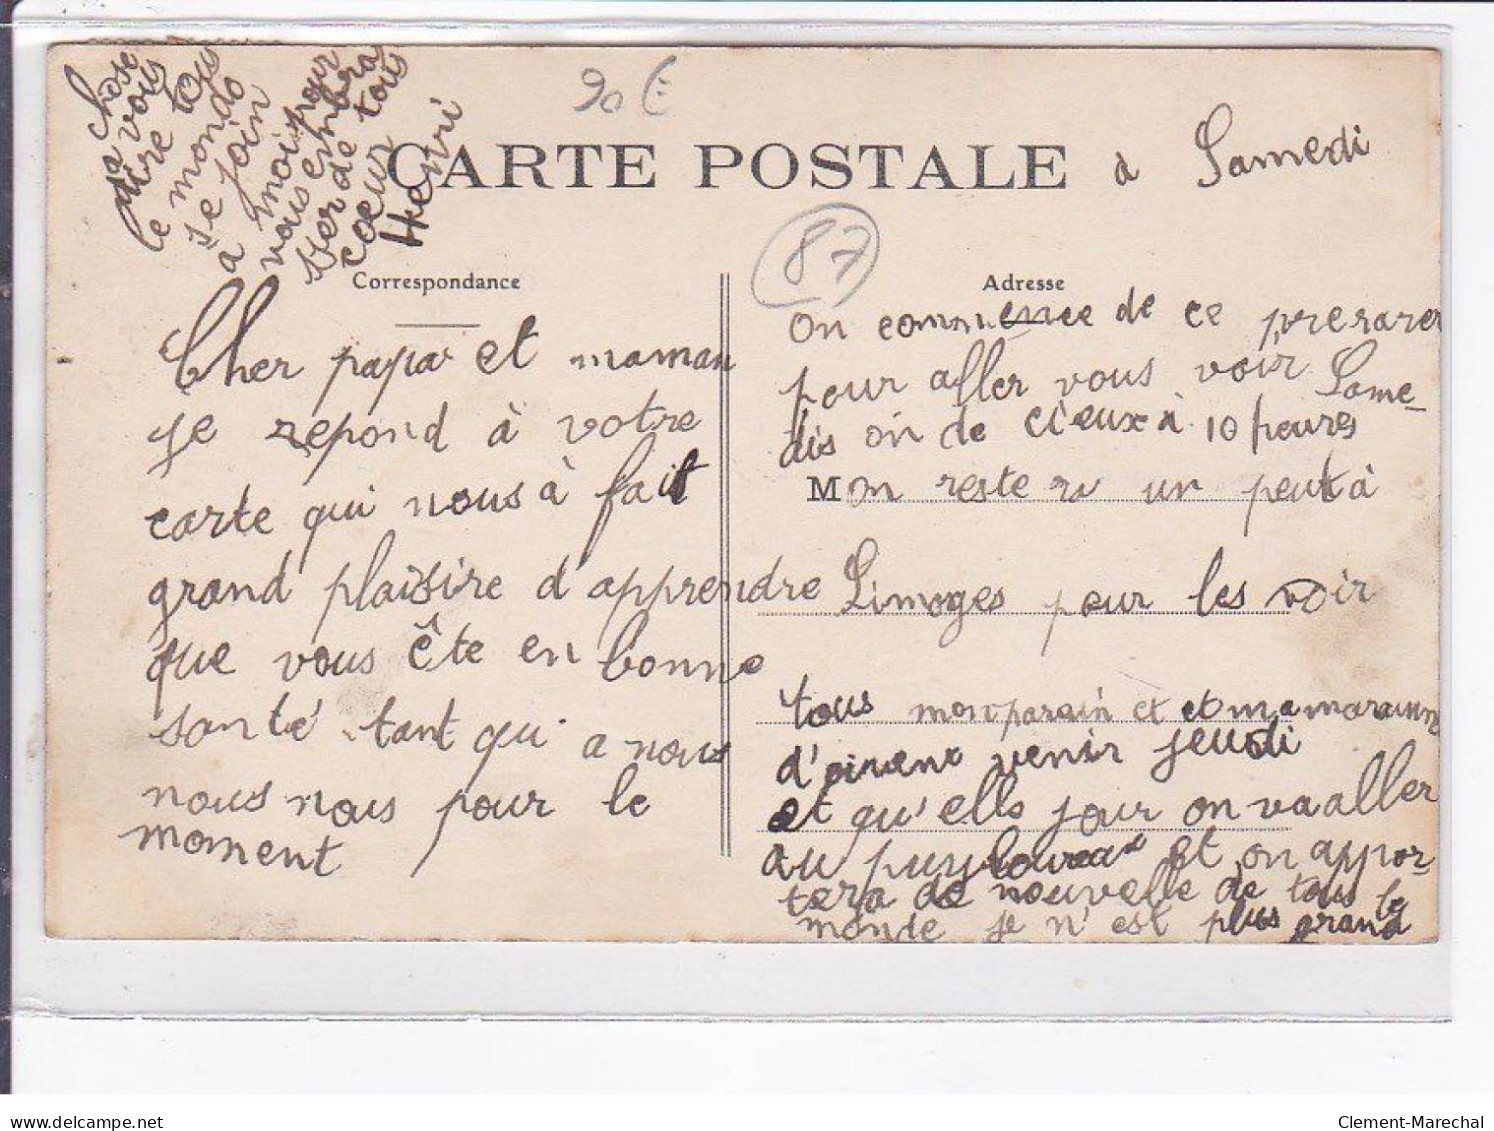 90 €
CARTE POSTALE
a Samedi
87
Correspondance
Adresse
Cher papa et maman
je repond à votre
carte qui nous à fait
grand plaisire d'apprendre
que vous ête en bonne
santé tant qui a nous
nous nous pour le
moment
on commence de ce prerarer
pour aller vous voir Same-
dis on de cieux à 10 heures
Mon restera un peut à
Limoges pour les voir
tous mon parain et et ma maraine
venir jeudi
et qu'elle jour on va aller
au puy et on appor-
tera de nouvelle de tous le
monde je n'est plus grand
chose
à vous
dire tous
le monde
se join
à moi pour
vous embra
sser de tous
coeur
Henri
delcampe.net
Clement-Marechal